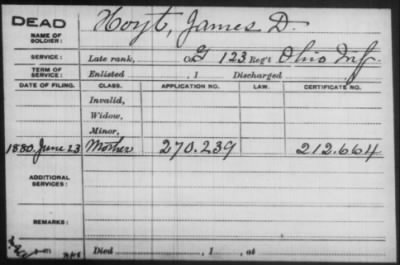 DEAD
NAME OF SOLDIER:
Hoyt, James D.
SERVICE: Late rank, Co. G 123 Reg't Ohio Inf.
TERM OF SERVICE: Enlisted , 1 Discharged
DATE OF FILING. CLASS. APPLICATION NO. LAW. CERTIFICATE NO.
Invalid,
Widow,
Minor,
1880. June 23 Mother 270.239 212.664
ADDITIONAL SERVICES:
REMARKS:
Died , 1 , at